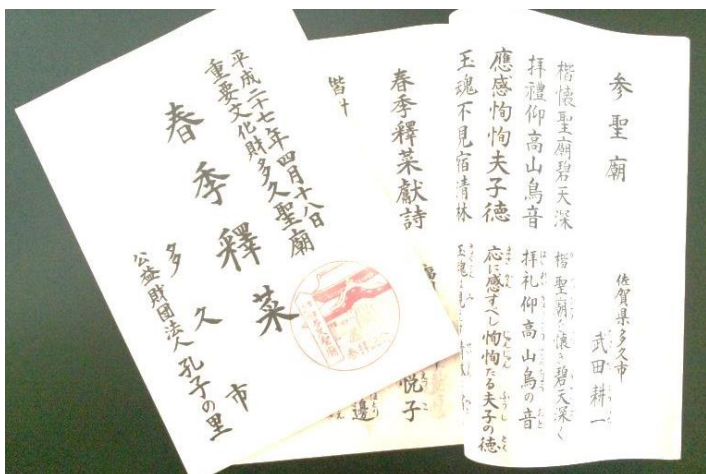 平成二十七年四月十八日
重要文化財多久聖廟
春季釋菜
多久市
公益財団法人孔子の里
春季釋菜獻詩
楷
悦子
邊
参聖廟
佐賀県多久市
武田耕一
楷懷聖廟碧天深
拝禮仰高山鳥音
應感恂恂夫子徳
玉魂不見宿清林
楷聖廟を懐き碧天深く
拝礼仰高山鳥の音
応に感ずべし恂恂たる夫子の徳